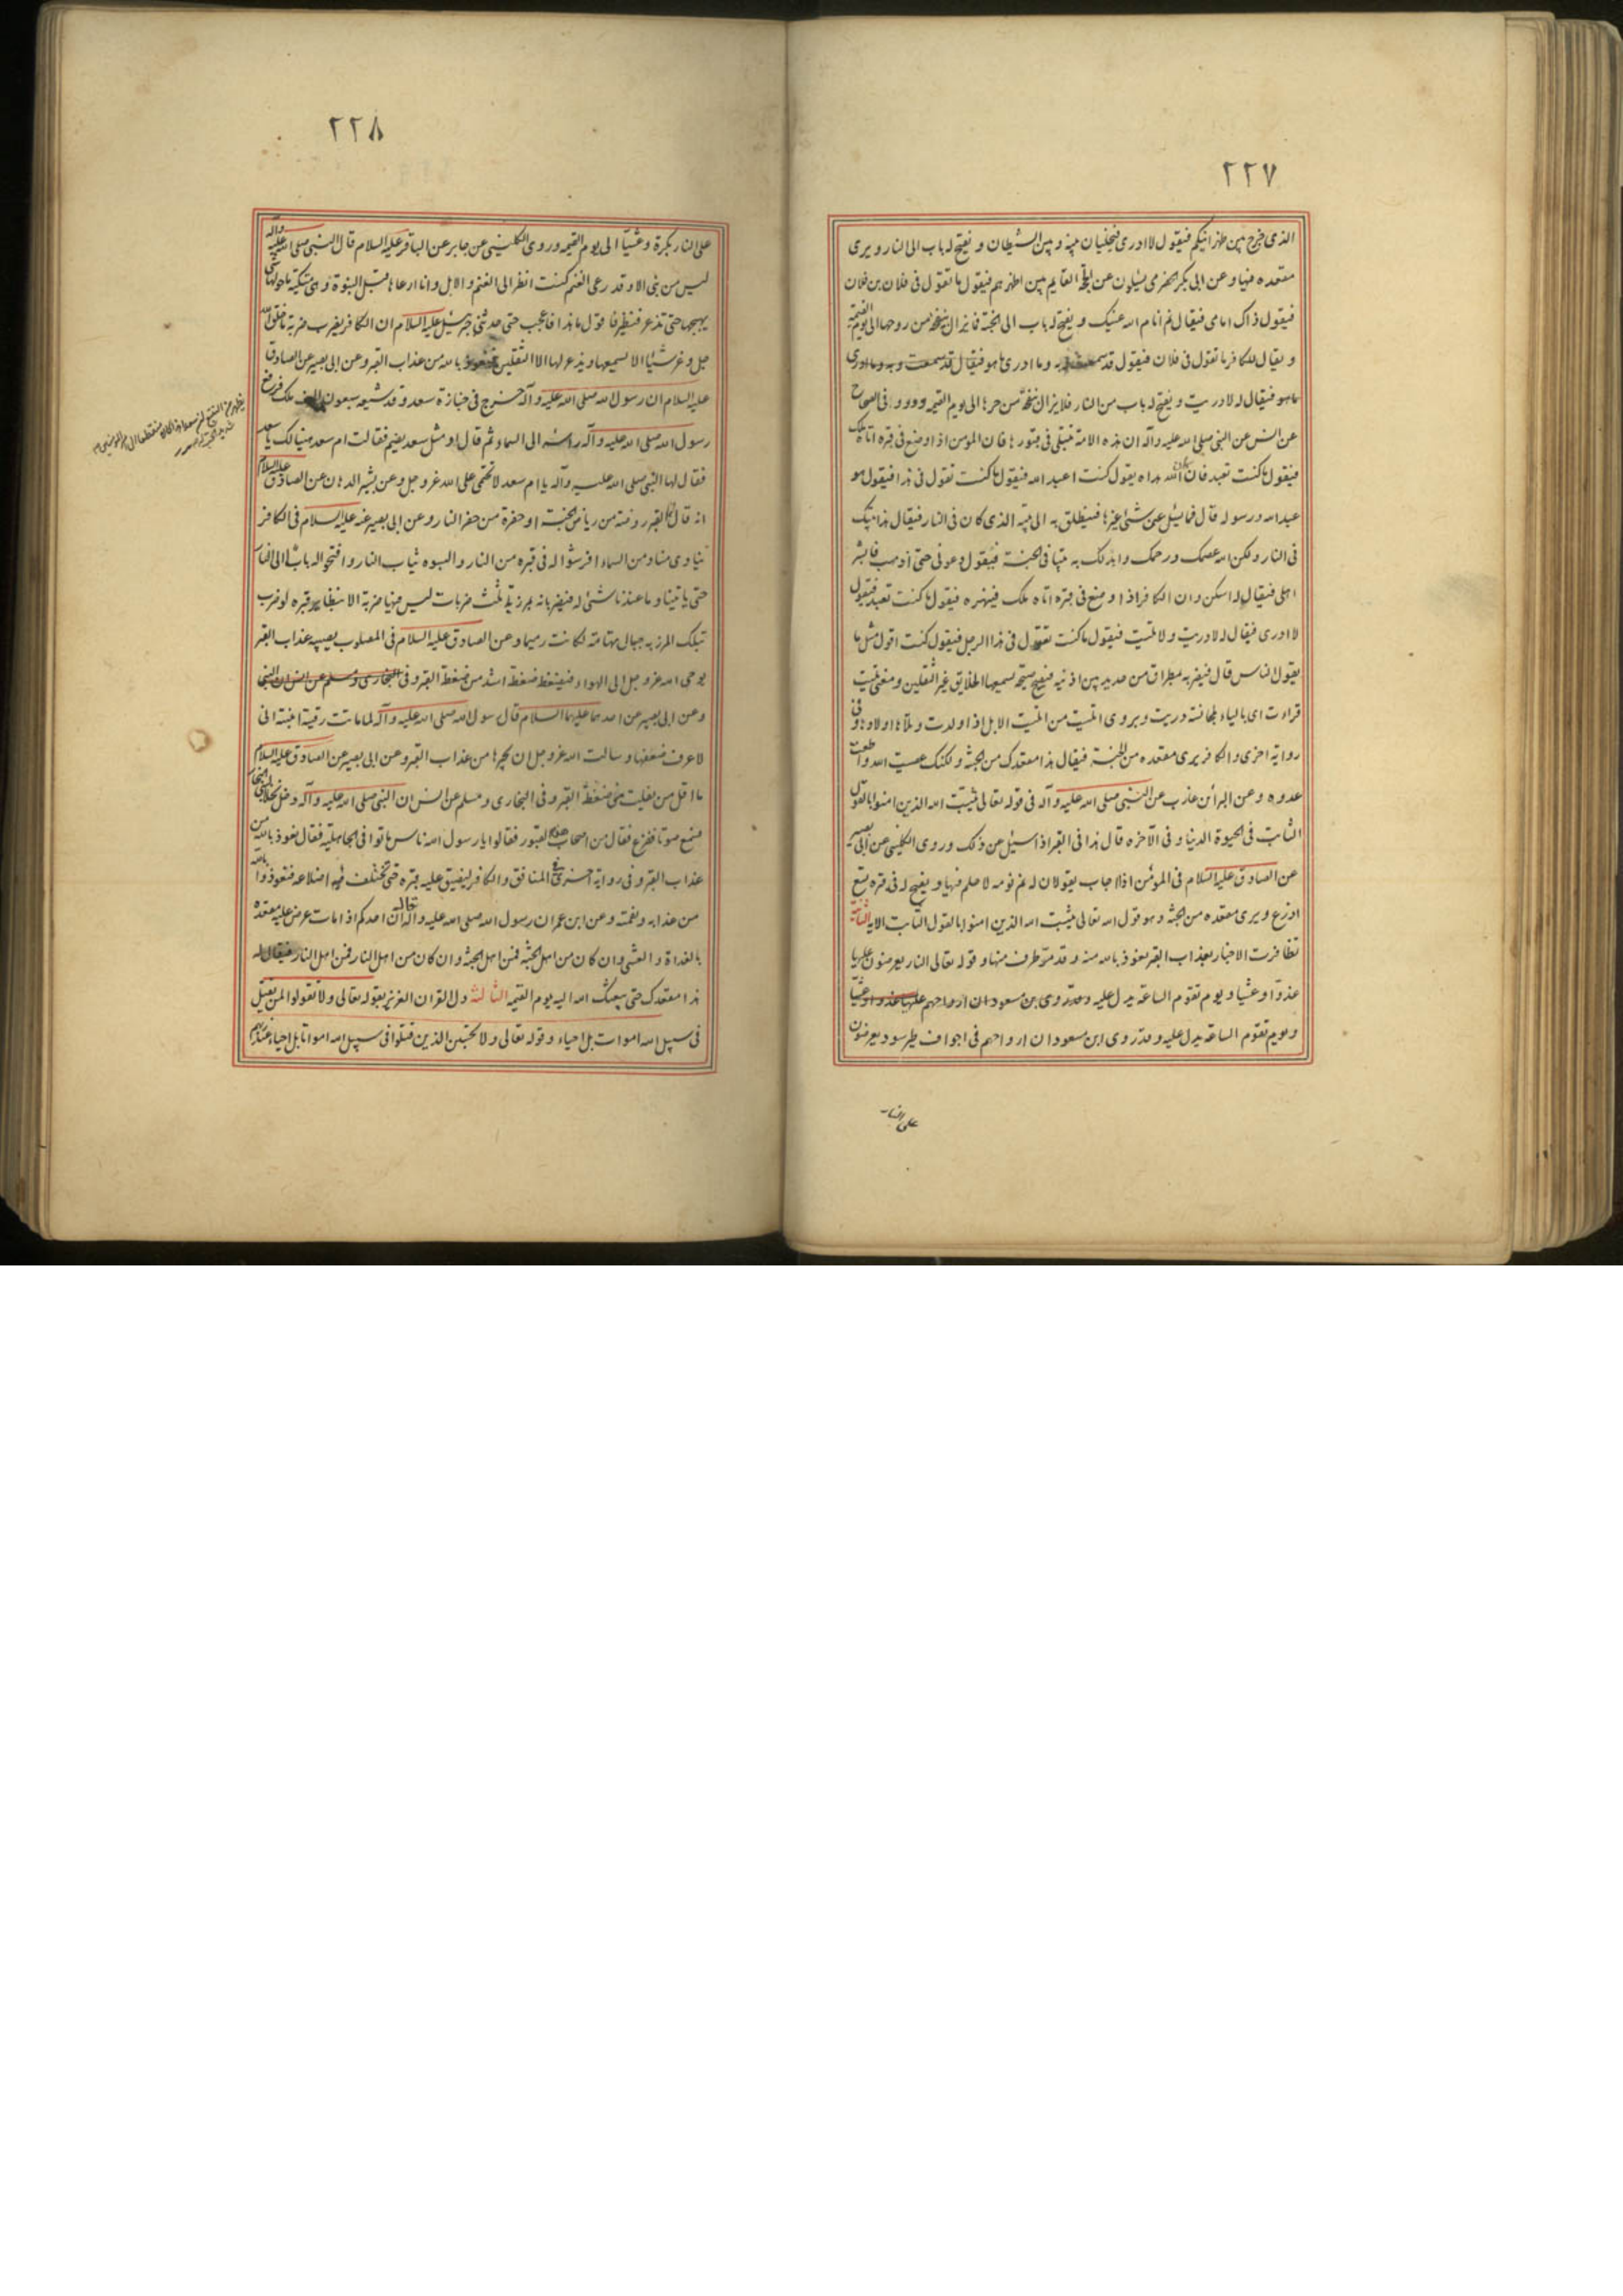 ٢٢٧
الذى خرج بين ظهرانيكم فيقول لا ادرى فيخليان بينه و بين الشيطان و يفتح له باب الى النار و يرى
مقعده فيها و عن ابى بكر الحضرمى يسئلون عن الحجة القايم بين اظهرهم فيقول ما تقول فى فلان بن فلان
فيقول ذاك امامى فيقال نم انام الله عينيك و يفتح له باب الى الجنة فما يزال من روحها الى يوم القيمة
و يقال للكافر ما تقول فى فلان فيقول قد سمعت به و ما ادرى ما هو فيقال قد سمعت به و ما ادرى
ما هو فيقال له لا دريت و يفتح له باب من النار فلا يزال من حرها الى يوم القيمة و فى الصحاح
عن انس عن النبى صلى الله عليه و اله ان هذه الامة تبتلى فى قبورها فان المؤمن اذا وضع فى قبره اتاه ملك
فيقول ما كنت تعبد فان الله هداه يقول كنت اعبد الله فيقول ما كنت تقول فى هذا فيقول هو
عبد الله و رسوله قال فما يسئل عن شئ غيرها فينطلق به الى بيته الذى كان فى النار فيقال هذا بيتك
فى النار و لكن الله عصمك و رحمك و ابدلك به بيتا فى الجنة فيقول دعونى حتى اذهب فابشر
اهلى فيقال له اسكن و ان الكافر اذا وضع فى قبره اتاه ملك فينهره فيقول ما كنت تعبد فيقول
لا ادرى فيقال له لا دريت و لا تليت فيقول ما كنت تقول فى هذا الرجل فيقول كنت اقول مثل ما
يقول الناس قال فيضربه بمطراق من حديد بين اذنيه فيصيح صيحة يسمعها الخلايق غير الثقلين و معنى تليت
قراءت اى بالياء لمجانسة دريت و يروى اتليت من اتليت الابل اذا ولدت و تلاها اولادها و فى
رواية اخرى و الكافر يرى مقعده من الجنة فيقال هذا مقعدك من الجنة و لكنك عصيت الله و اطعت
عدوه و عن البرآء بن عازب عن النبى صلى الله عليه و آله فى قوله تعالى يثبت الله الذين امنوا بالقول
الثابت فى الحيوة الدنيا و فى الآخره قال هذا فى القبر اذا سئل عن ذلك و روى الكلينى عن ابى بصير
عن الصادق عليه السلام فى المؤمن اذا اجاب يقولان له نم نومة لا حلم فيها و يفتح له فى قبره تسع
اذرع و يرى مقعده من الجنة و هو قول الله تعالى يثبت الله الذين امنوا بالقول الثابت الاية الثانية
تظافرت الاخبار بعذاب القبر نعوذ بالله منه و قد مرّ طرف منها و قوله تعالى النار يعرضون عليها
غدوّا و عشيا و يوم تقوم الساعة يدل عليه و قد روى ابن مسعود ان ارواحهم عليها غدوا و عشيا
و يوم تقوم الساعة يدل عليه و قد روى ابن مسعود ان ارواحهم فى اجواف طير سود يعرضون
على النار
٢٢٨
على النار بكرة و عشيّا الى يوم القيمه و روى الكلينى عن جابر عن الباقر عليه السلام قال النبى صلى الله عليه و اله
ليس من نبى الا و قد رعى الغنم كنت انظر الى الغنم و الابل و انا ارعاها قبل النبوة و هى متمكنة ما حولها شئ
يهيجها حتى تذعر فتطير فاقول ما هذا فاعجب حتى حدثنى جبرئيل عليه السلام ان الكافر يضرب ضربة ما خلق الله
جل و عز شيئا الا يسمعها و يذعر لها الا الثقلين فنعوذ بالله من عذاب القبر و عن ابى بصير عن الصادق
عليه السلام ان رسول الله صلى الله عليه و آله خرج فى جنازة سعد و قد شيعه سبعون الف ملك فرفع
رسول الله صلى الله عليه و آله راسه الى السماء ثم قال او مثل سعد يضم فقالت ام سعد هنيا لك يا سعد
فقال لها النبى صلى الله عليه و آله يا ام سعد لا تحتمى على الله عز و جل و عن بشير الدهان عن الصادق عليه السلام
انه قال القبر روضة من رياض الجنة او حفرة من حفر النار و عن ابى بصير عنه عليه السلام فى الكافر
ينادى مناد من السماء افرشوا له فى قبره من النار و البسوه ثياب النار و افتحوا له بابا الى النار
حتى ياتينا و ما عندنا شئ له فيضربانه بمرزبة ثلث ضربات ليس منها ضربة الا يتطاير قبره لو ضرب
بتلك المرزبه جبال تهامة لكانت رميما و عن الصادق عليه السلام فى المصلوب يصيبه عذاب القبر
يوحى الله عز و جل الى الهواء فيضغطه ضغطة اشد من ضغطة القبر و فى البخارى و مسلم عن انس ان النبى
و عن ابى بصير عن احدهما عليهما السلام قال رسول الله صلى الله عليه و آله لما ماتت رقية ابنته انى
لاعرف ضعفها و سالت الله عز و جل ان يجيرها من عذاب القبر و عن ابى بصير عن الصادق عليه السلام
ما اقل من يفلت من ضغطة القبر و فى البخارى و مسلم عن انس ان النبى صلى الله عليه و آله دخل نخلا لبنى النجار
فسمع صوتا ففزع فقال من اصحاب هذه القبور فقالوا يا رسول الله ناس ماتوا فى الجاهلية فقال نعوذ بالله من
عذاب القبر و فى رواية اخرى فى المنافق و الكافر ليضيق عليه قبره حتى تختلف فيه اضلاعه فتعوذوا بالله
من عذابه و نقمته و عن ابن عمر ان رسول الله صلى الله عليه و آله قال ان احدكم اذا مات عرض عليه مقعده
بالغداة و العشى و ان كان من اهل الجنة فمن اهل الجنة و ان كان من اهل النار فمن اهل النار فيقال له
هذا مقعدك حتى يبعثك الله اليه يوم القيمه الثالثة دل القران العزيز بقوله تعالى و لا تقولوا لمن يقتل
فى سبيل الله اموات بل احياء و قوله تعالى و لا تحسبن الذين قتلوا فى سبيل الله امواتا بل احياء عند ربهم